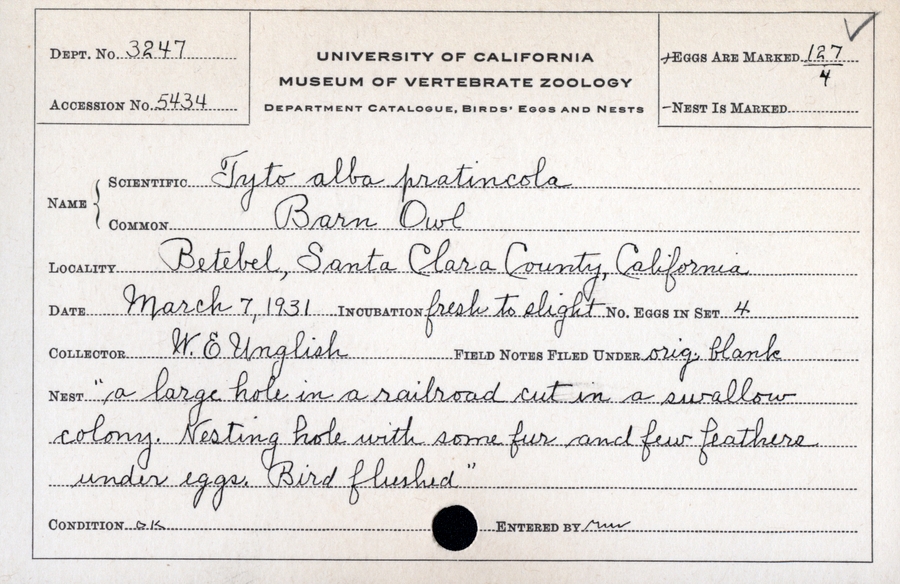 DEPT. No. 3247
ACCESSION No. 5434
UNIVERSITY OF CALIFORNIA
MUSEUM OF VERTEBRATE ZOOLOGY
DEPARTMENT CATALOGUE, BIRDS' EGGS AND NESTS
+EGGS ARE MARKED 127/4
-NEST IS MARKED
NAME
SCIENTIFIC Tyto alba pratincola
COMMON Barn Owl
LOCALITY Betebel, Santa Clara County, California
DATE March 7, 1931 INCUBATION fresh to slight NO. EGGS IN SET 4
COLLECTOR W. E Unglish FIELD NOTES FILED UNDER orig. blank
NEST "a large hole in a railroad cut in a swallow
colony. Nesting hole with some fur and few feathers
under eggs. Bird flushed"
CONDITION OK ENTERED BY